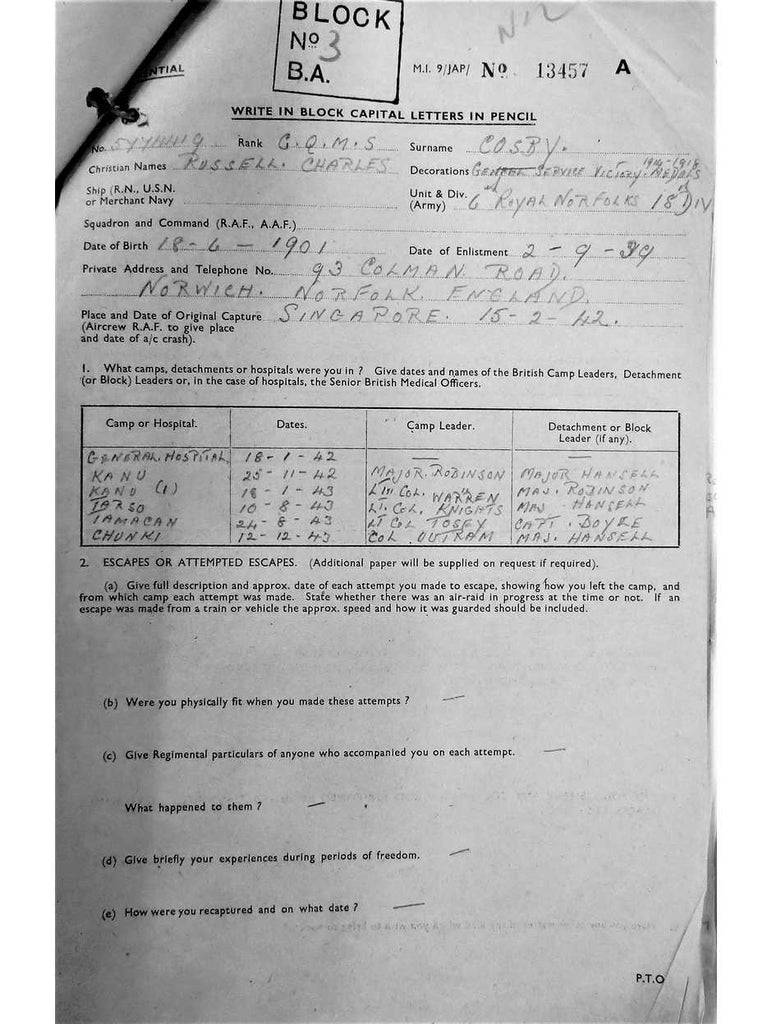 BLOCK
Nº 3
B.A.
NIL
ENTIAL
M.I. 9/JAP/ Nº 13457 A
WRITE IN BLOCK CAPITAL LETTERS IN PENCIL
No. Rank C.Q.M.S Surname COSBY.
Christian Names RUSSELL. CHARLES Decorations GENERAL SERVICE VICTORY. MEDALS 1914-1918
Ship (R.N., U.S.N.
or Merchant Navy
Unit & Div. 6 ROYAL NORFOLKS 18 DIV
(Army)
Squadron and Command (R.A.F., A.A.F.)
Date of Birth 18-6-1901 Date of Enlistment 2-9-39
Private Address and Telephone No. 93 COLMAN ROAD.
NORWICH. NORFOLK. ENGLAND.
Place and Date of Original Capture SINGAPORE. 15-2-42.
(Aircrew R.A.F. to give place
and date of a/c crash).
1. What camps, detachments or hospitals were you in ? Give dates and names of the British Camp Leaders, Detachment
(or Block) Leaders or, in the case of hospitals, the Senior British Medical Officers.
Camp or Hospital. Dates. Camp Leader. Detachment or Block
Leader (if any).
GENERAL. HOSPITAL 18-1-42 —
KANU 25-11-42 MAJOR. ROBINSON MAJOR HANSELL
KANU (1) 18-1-43 LT COL. WARREN MAJ. ROBINSON
TARSO 10-8-43 LT. COL. KNIGHTS MAJ. HANSELL
TAMACAN 24-8-43 LT COL TOSEY CAPT. BOYLE
CHUNKI 12-12-43 COL OUTRAM MAJ. HANSELL
2. ESCAPES OR ATTEMPTED ESCAPES. (Additional paper will be supplied on request if required).
(a) Give full description and approx. date of each attempt you made to escape, showing how you left the camp, and
from which camp each attempt was made. State whether there was an air-raid in progress at the time or not. If an
escape was made from a train or vehicle the approx. speed and how it was guarded should be included.
(b) Were you physically fit when you made these attempts ? —
(c) Give Regimental particulars of anyone who accompanied you on each attempt. —
What happened to them ? —
(d) Give briefly your experiences during periods of freedom. —
(e) How were you recaptured and on what date ? —
P.T.O